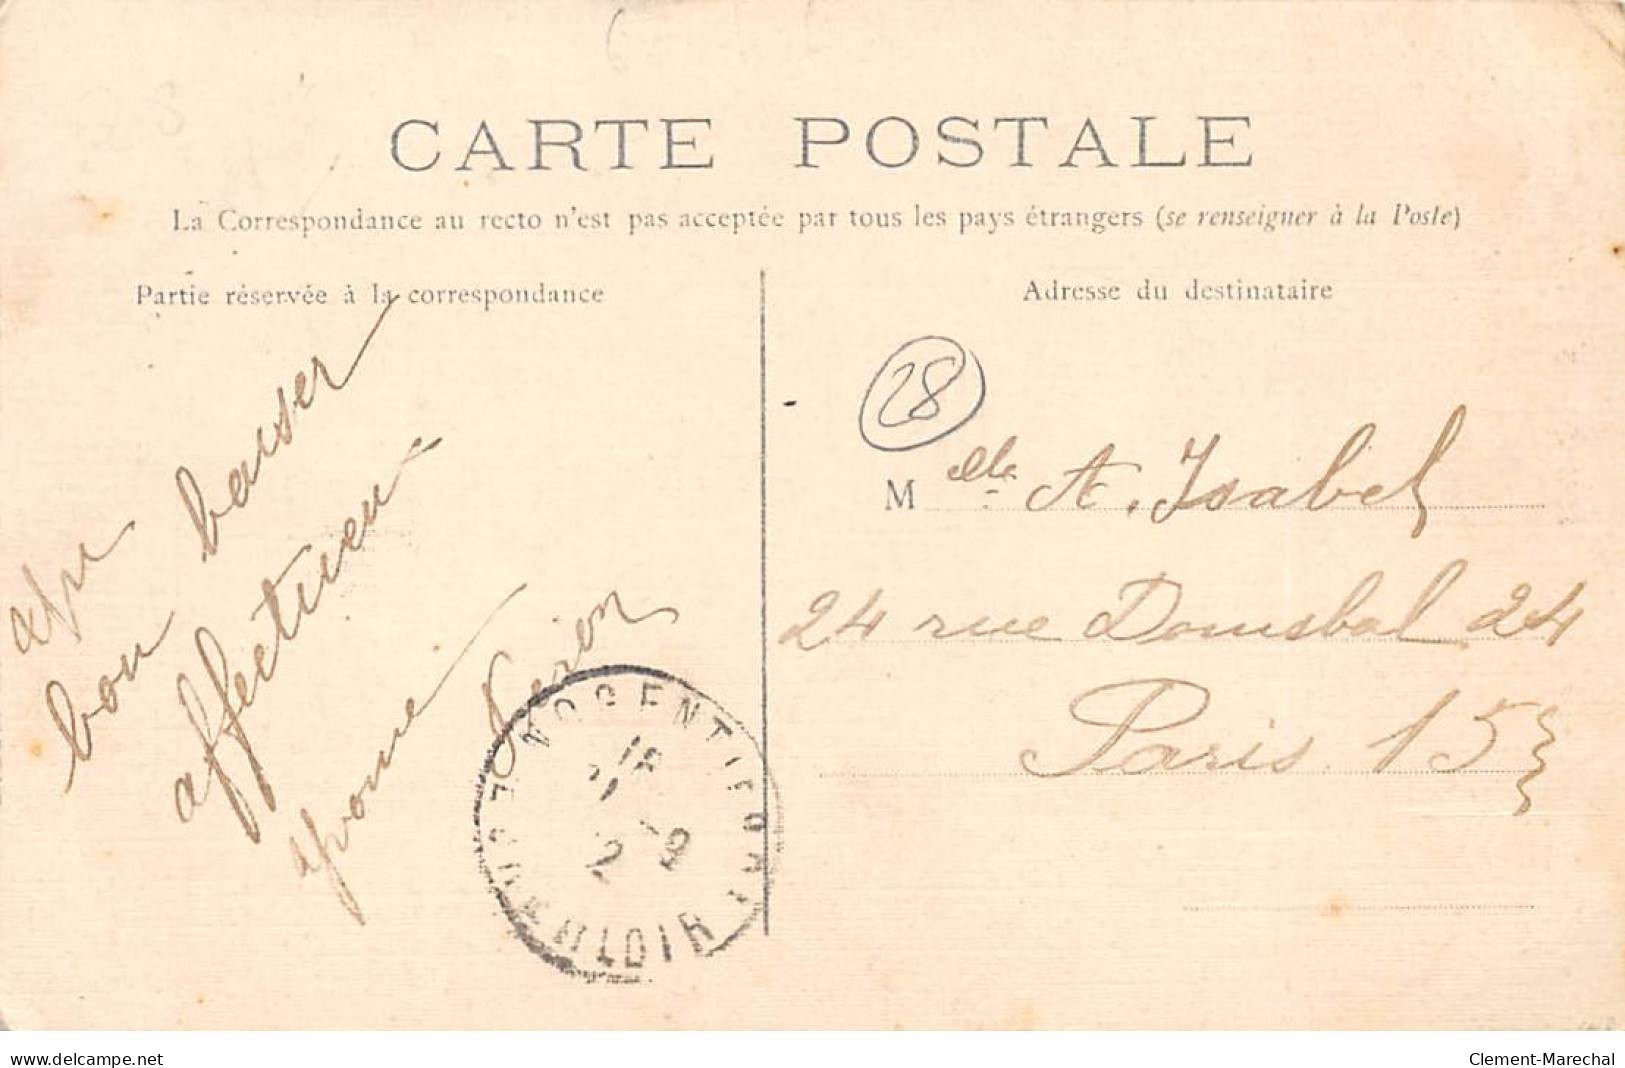 CARTE POSTALE
La Correspondance au recto n'est pas acceptée par tous les pays étrangers (se renseigner à la Poste)
Partie réservée à la correspondance
Adresse du destinataire
28
Mlle A. Isabel
24 rue Dombal 24
Paris 15
bon baiser
affectueux
Yvonne
NOGENT LE ROI
EURE ET LOIR
www.delcampe.net
Clement-Marechal